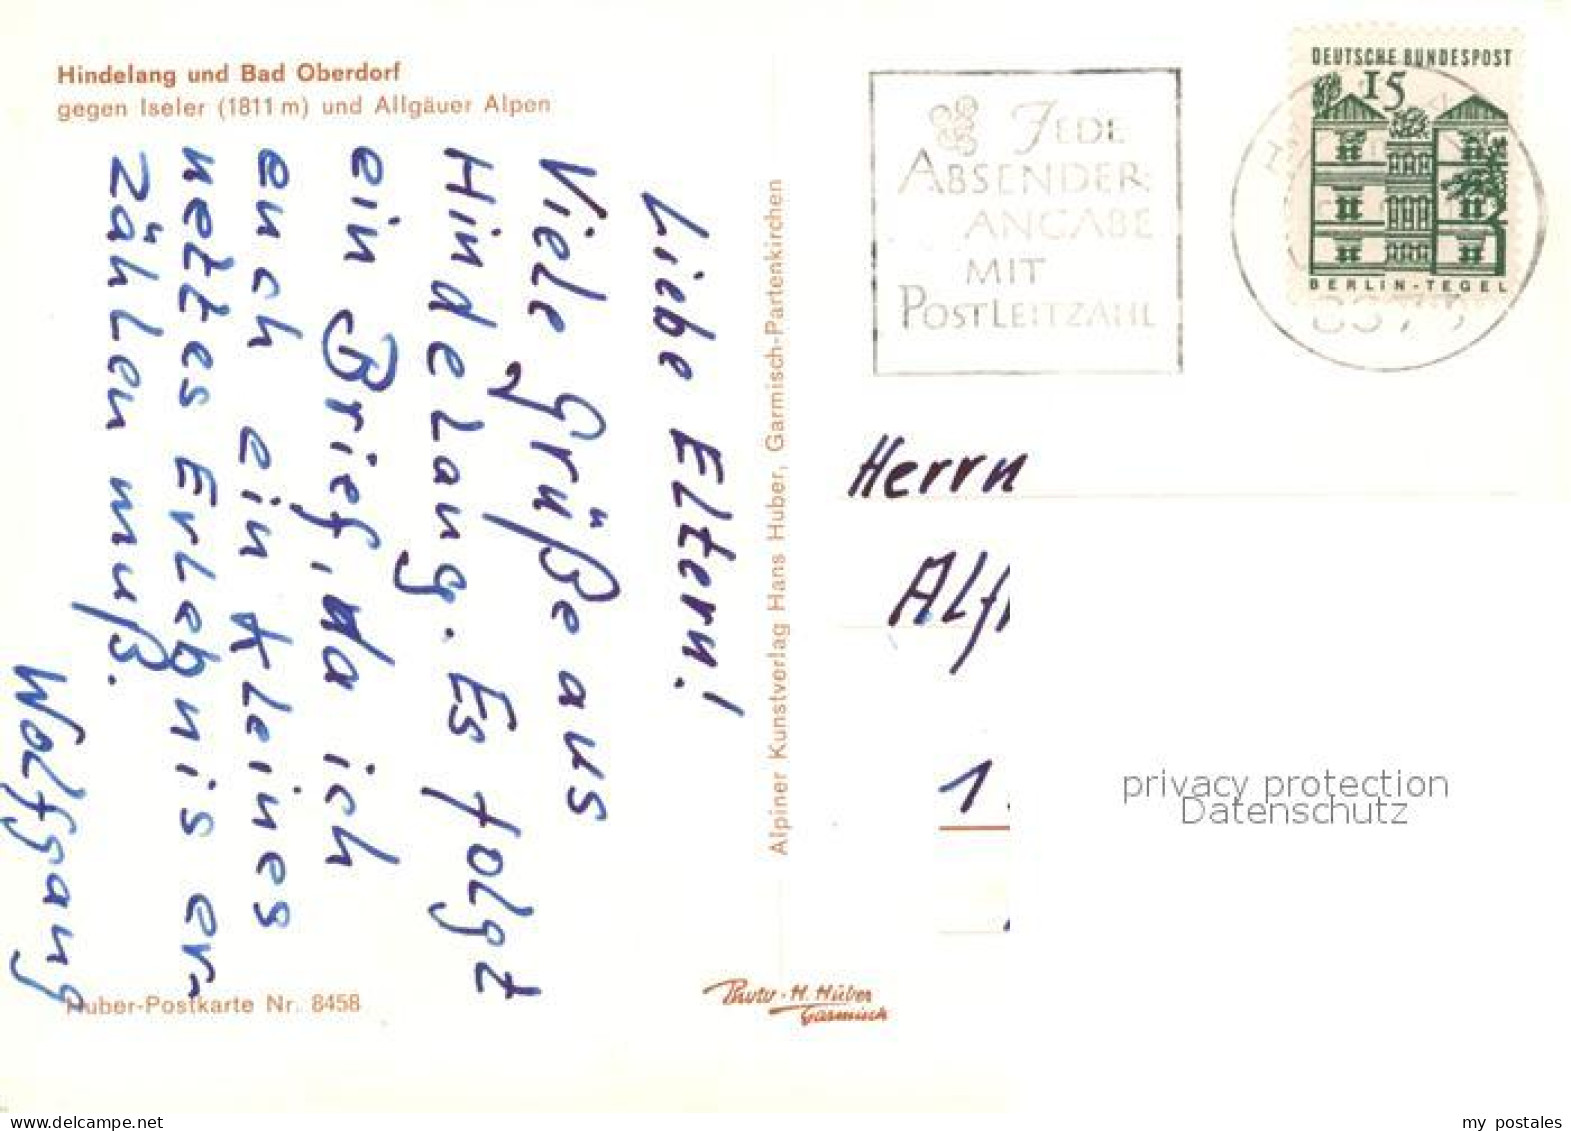 Hindelang und Bad Oberdorf
gegen Iseler (1811 m) und Allgäuer Alpen
Liebe Eltern!
Viele Grüße aus
Hindelang. Es folgt
ein Brief, da ich
euch ein kleines
nettes Erlebnis er-
zählen muß.
Wolfgang
Huber-Postkarte Nr. 8458
Alpiner Kunstverlag Hans Huber, Garmisch-Partenkirchen
Photo-H. Huber
Garmisch
JEDE
ABSENDER-
ANGABE
MIT
POSTLEITZAHL
DEUTSCHE BUNDESPOST
15
BERLIN-TEGEL
Herrn
1
privacy protection
Datenschutz
my postales